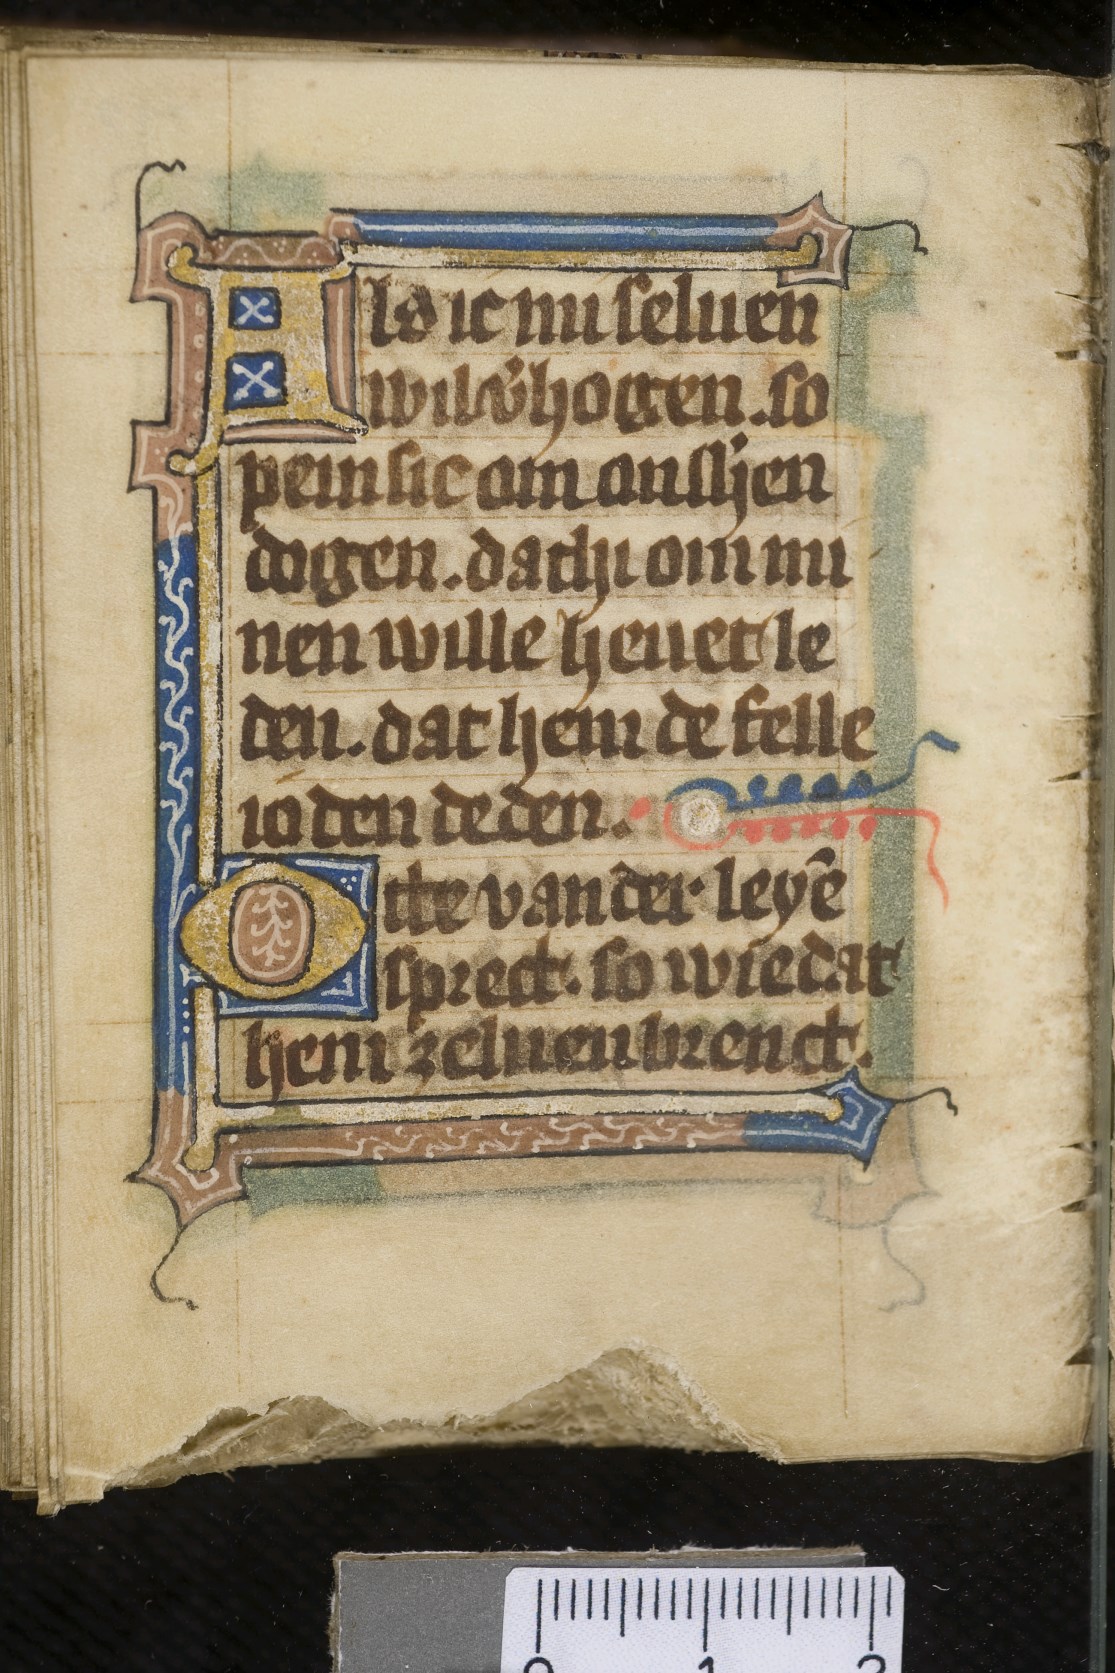 Als ic mi seluen
wil v'hogen. so
peinsic om ons h'en
dogen. dat hi om mi
nen wille heuet le
den. dat hem de felle
ioden deden.
Otte van der leyē
sprect. so wie dat
hem zeluen brenct.
0 1 2